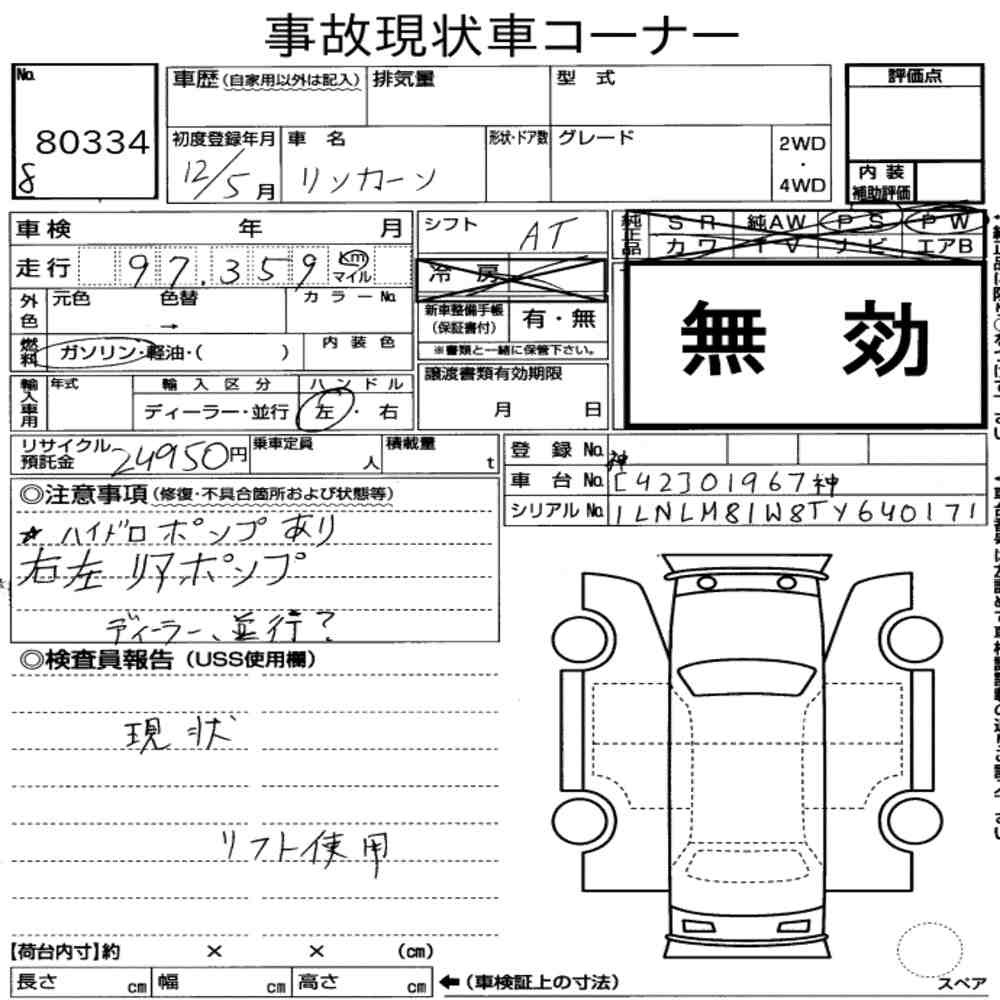 事故現状車コーナー
No. 80334
8
車歴(自家用以外は記入) 排気量 型式
評価点
初度登録年月 12/5月 車名 リンカーン 形状・ドア数 グレード 2WD・4WD
内装補助評価
車検 年 月
走行 97.359 km マイル
外色 元色 色替 → カラーNo.
燃料 ガソリン・軽油・( ) 内装色
輸入車用 年式 輸入区分 ディーラー・並行 ハンドル 左・右
シフト AT
冷房
新車整備手帳(保証書付) 有・無
※書類と一緒に保管下さい。
譲渡書類有効期限
月 日
純正品 SR 純AW PS PW
カワ TV ナビ エアB
無効
リサイクル預託金 24950円 乗車定員 人 積載量 t
登録No.
車台No. 神[42]01967神
シリアルNo. 1LNLM81W8TY640171
◎注意事項(修復・不具合箇所および状態等)
★ハイドロポンプあり
右左 リアポンプ
ディーラー、並行?
◎検査員報告(USS使用欄)
現状
リフト使用
【荷台内寸】約 × × (cm)
長さ cm 幅 cm 高さ cm ←(車検証上の寸法)
スペア